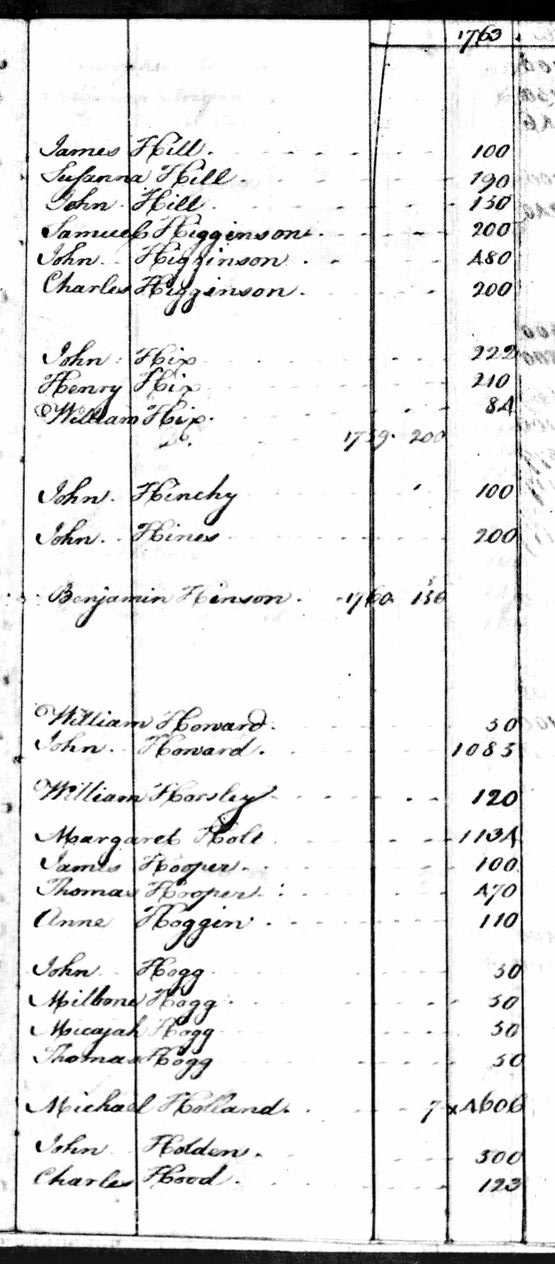 1763
James Hill. 100
Susanna Hill. 190
John Hill. 130
Samuel Higginson 200
John Higginson 480
Charles Higginson. 200
John Hix 222
Henry Hix 210
William Hix. 84
1759. 200
John Hinchy 100
John Hines 200
Benjamin Hinson. 1760 150
William Howard. 50
John Howard. 1085
William Horsley 120
Margaret Holt 1134
James Hooper. 100
Thomas Hooper 470
Anne Hoggin 110
John Hogg 50
Milbone Hogg 50
Micajah Hogg 50
Thomas Hogg 50
Michael Holland. 7 x 4606
John Holden. 500
Charles Hood. 123